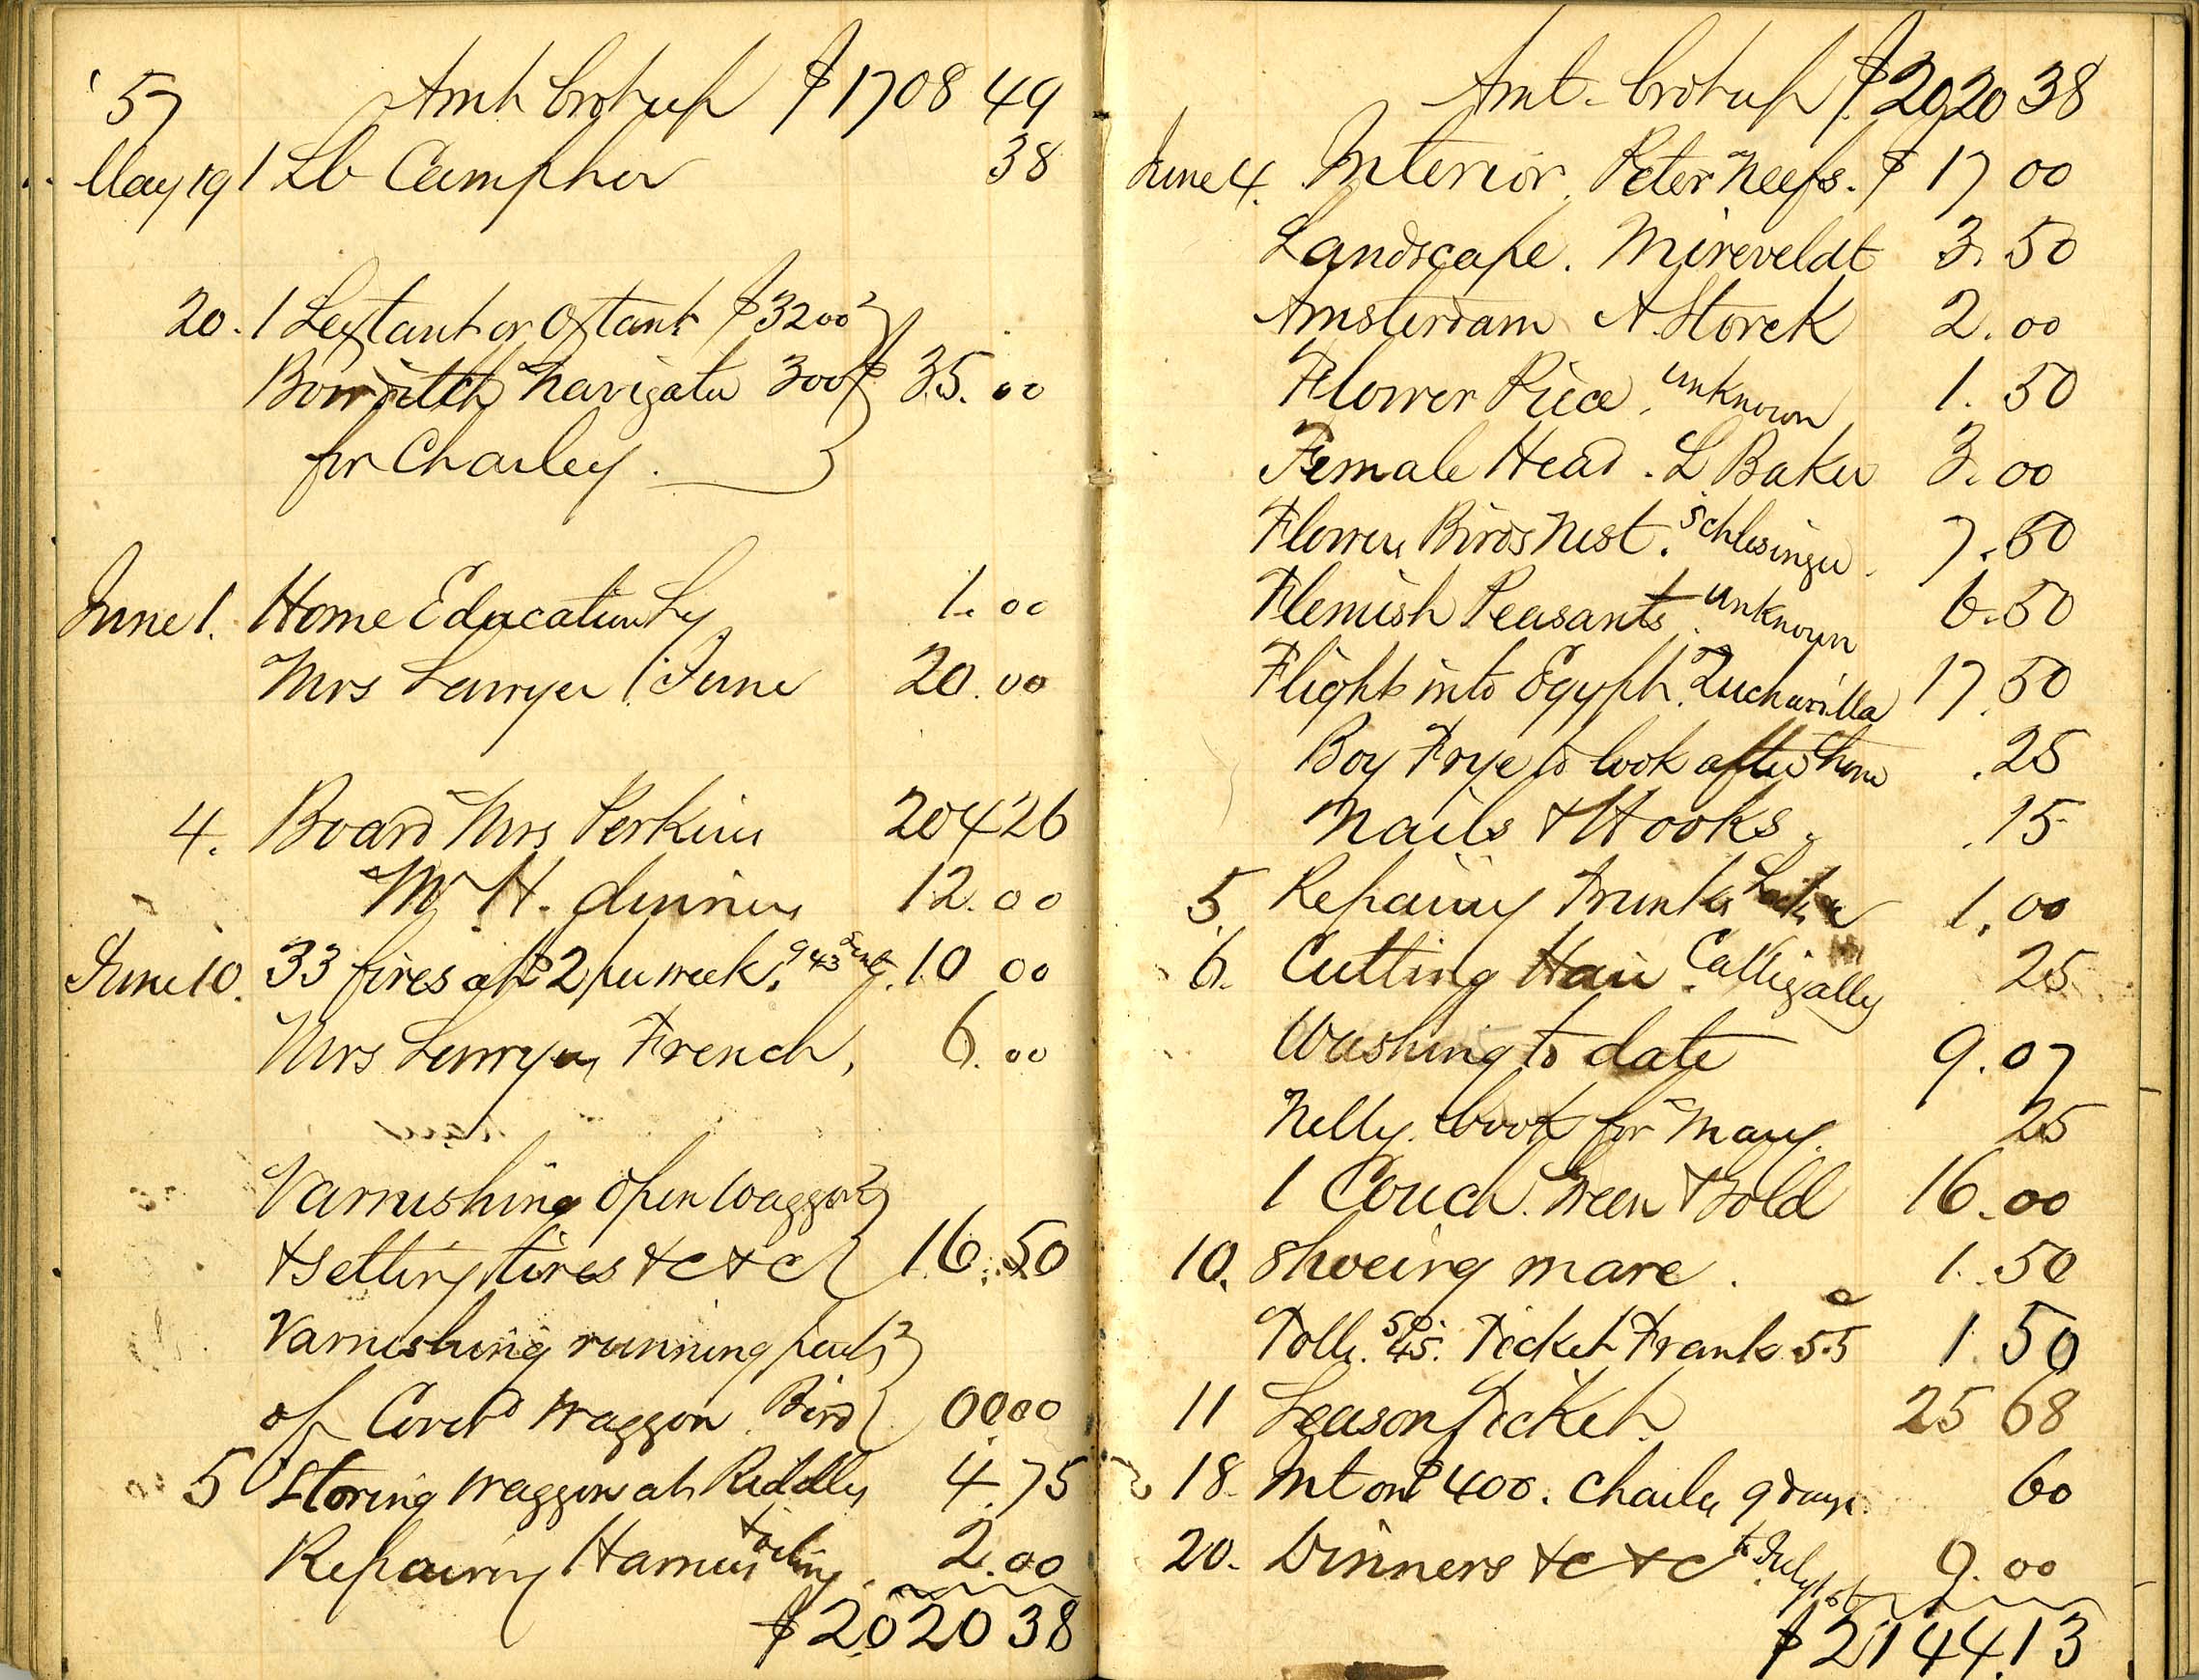 '57 Amt brot up $1708 49
May 19 1 Lb Camphor 38
20. 1 Sextant or Oxtant $3200
Bowditch Navigator 300 $ 35.00
for Charley.
June 1. Home Education Sy 1.00
Mrs Lawyer 1 June 20.00
4. Board Mrs Perkins 204 26
Mr H. dinners 12.00
June 10. 33 fires at 2 per week. 10 00
Mrs Lawyer French, 6.00
Varnishing open waggon
& setting tires &c &c 16.50
Varnishing running parts
of Coverd Waggon Bird 00.00
5 Storing waggon at Riddly 4.75
Repairing Harness & oiling. 2.00
$2020 38
Amt. brot up $2020 38
June 4. Interior. Peter Neefs. $ 17 00
Landscape. Mireveldt 3.50
Amsterdam A. Storck 2.00
Flower Piece. unknown 1.50
Female Head. L Baker 3.00
Flower Birds Nest. Schlesinger 7.50
Flemish Peasants. unknown 6.50
Flight into Egypt. Zucharilla 17.50
Boy Frye to look after them .25
Nails & Hooks. .15
5. Repairing Trunks 1.00
6. Cutting Hair. Calligally 25
Washing to date 9.07
Nelly. book for Mary. 25
1 Couch. Green & Gold 16.00
10. Shoeing mare. 1.50
Tolls. 50. 45. Ticket Frank 55 1.50
11 Season Ticket. 25 68
18. Int on $400. Charley 9 days. 60
20. Dinners &c &c to July 1st 9.00
$2144.13